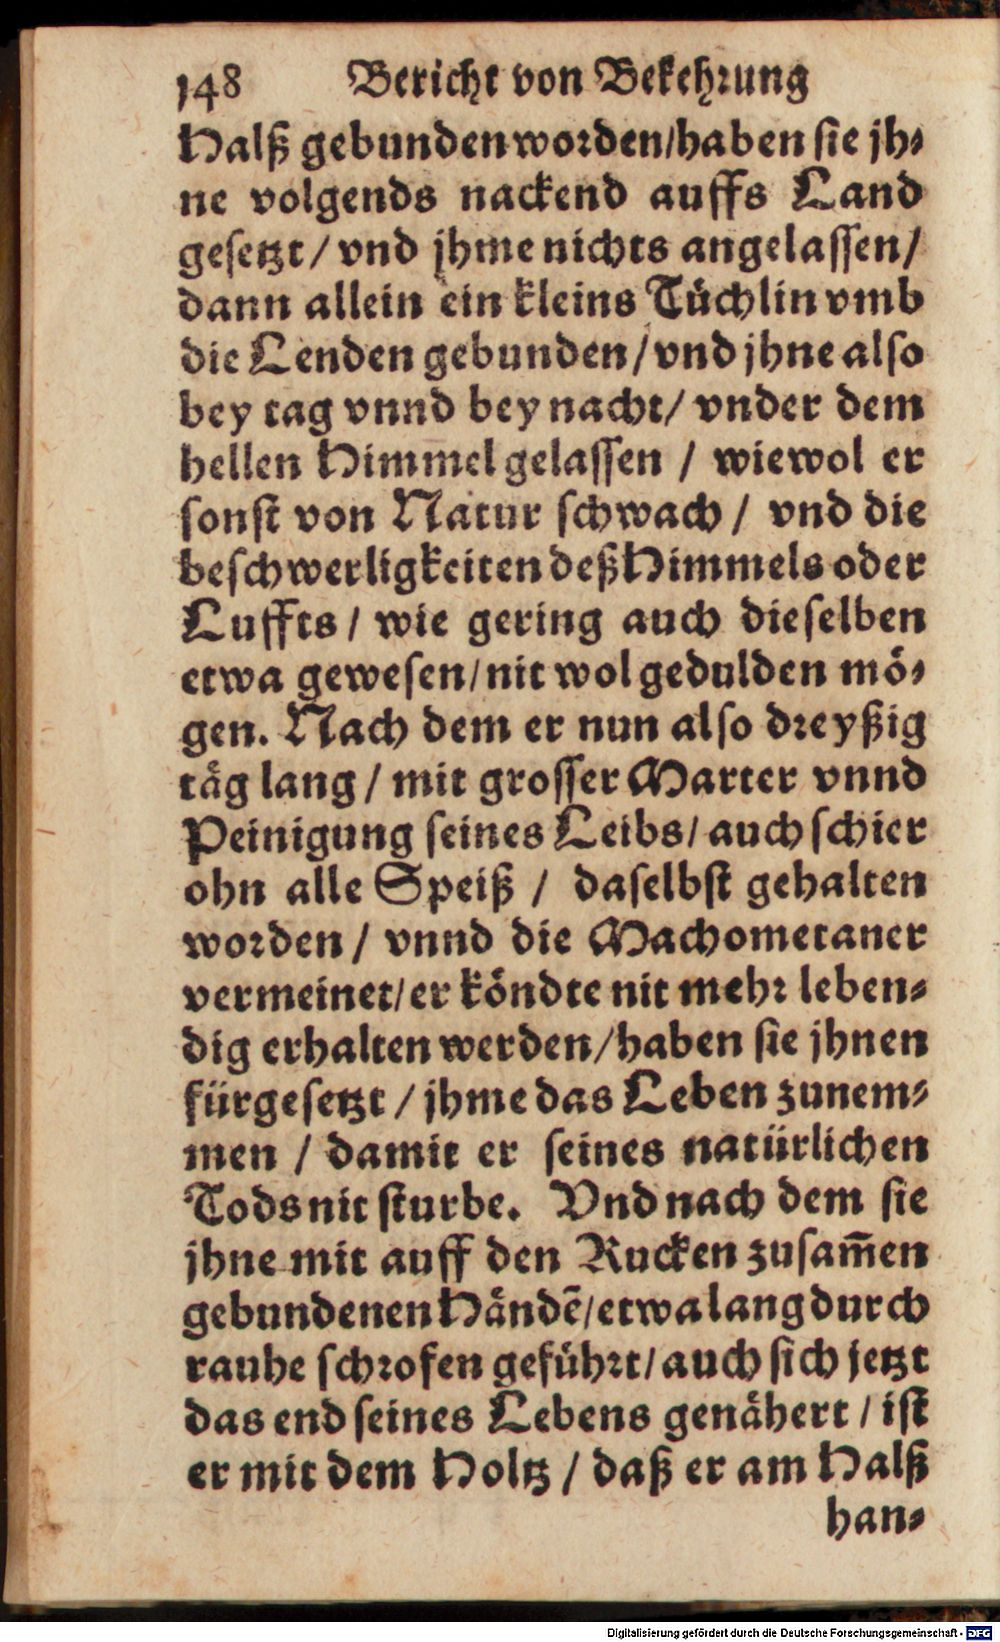 148 Bericht von Bekehrung
Halß gebunden worden/haben sie jh⸗
ne volgends nackend auffs Land
gesetzt / vnd jhme nichts angelassen /
dann allein ein kleins Tüchlin vmb
die Lenden gebunden / vnd jhne also
bey tag vnnd bey nacht / vnder dem
hellen Himmel gelassen / wiewol er
sonst von Natur schwach / vnd die
beschwerligkeiten deß Himmels oder
Luffts / wie gering auch dieselben
etwa gewesen/nit wol gedulden mö⸗
gen. Nach dem er nun also dreyßig
täg lang / mit grosser Marter vnnd
Peinigung seines Leibs / auch schier
ohn alle Speiß / daselbst gehalten
worden / vnnd die Machometaner
vermeinet/er köndte nit mehr leben⸗
dig erhalten werden/haben sie jhnen
fürgesetzt / jhme das Leben zunem⸗
men / damit er seines natürlichen
Tods nit sturbe. Vnd nach dem sie
jhne mit auff den Rucken zusam̅en
gebundenen Händē/etwa lang durch
rauhe schrofen geführt/auch sich jetzt
das end seines Lebens genähert / ist
er mit dem Holtz / daß er am Halß
han⸗
Digitalisierung gefördert durch die Deutsche Forschungsgemeinschaft - DFG